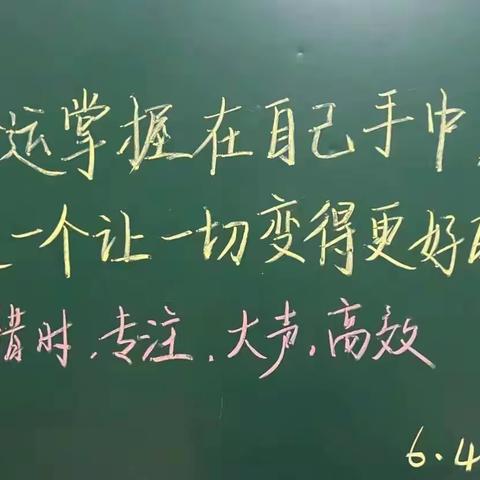 运掌握在自己手中
一个让一切变得更好
惜时,专注,大声,高效
6.4